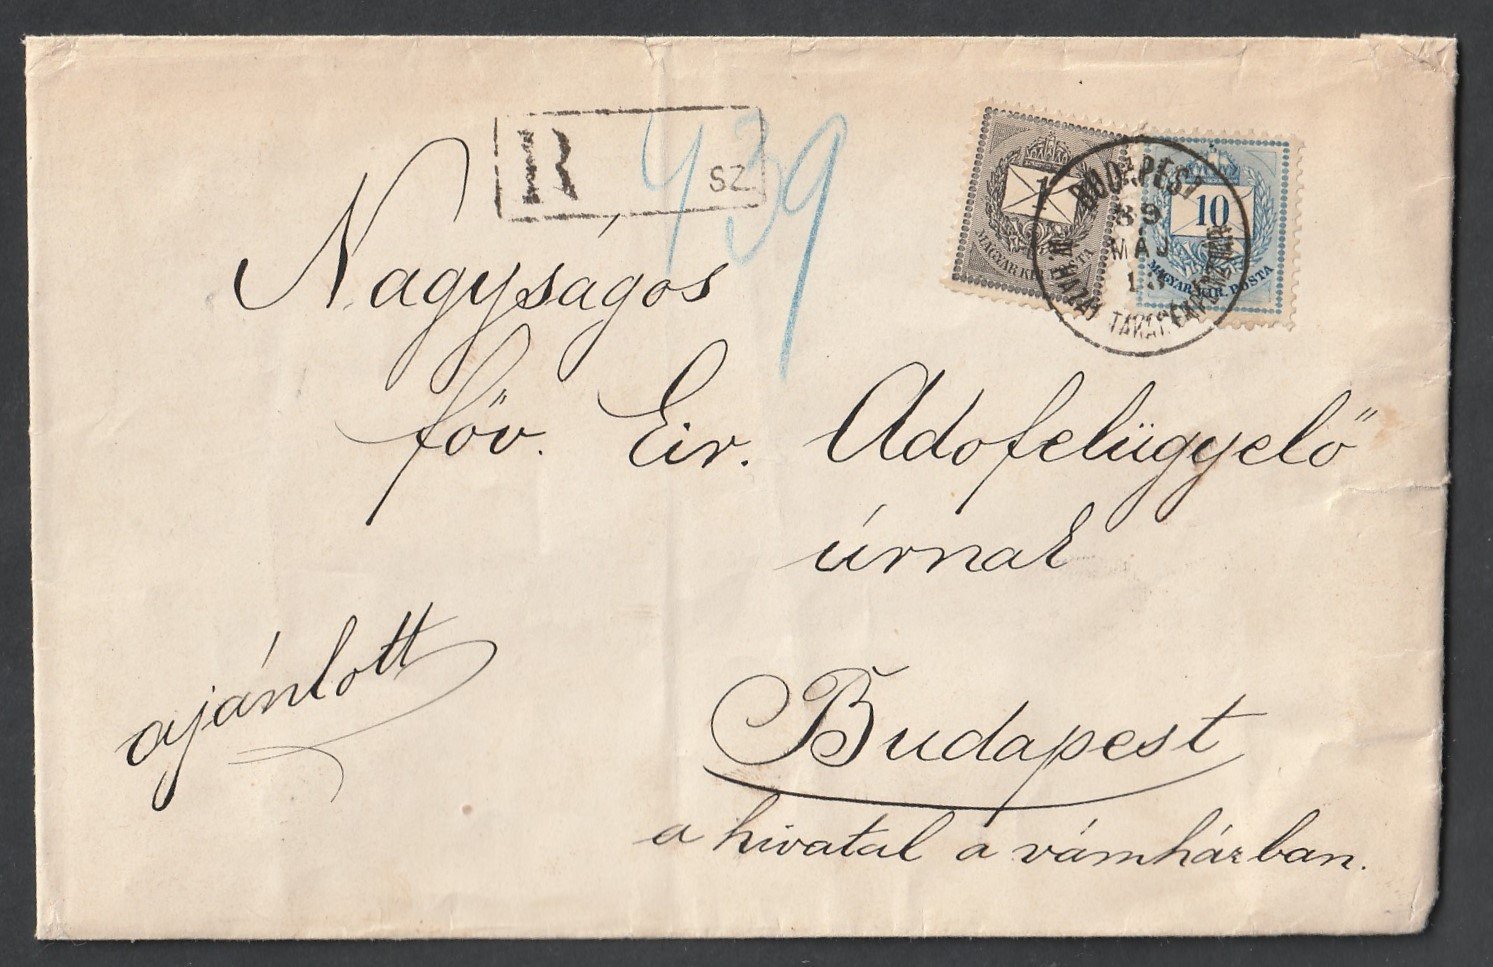 R 439
SZ.
1
MAGYAR KIR. POSTA
10
MAGYAR KIR. POSTA
BUDAPEST
89
MÁJ
13
TAKARÉKPÉNZTÁR
Nagyságos
főv. Eir. Adofelügyelő
úrnak
ajánlott
Budapest
a hivatal a vámházban.